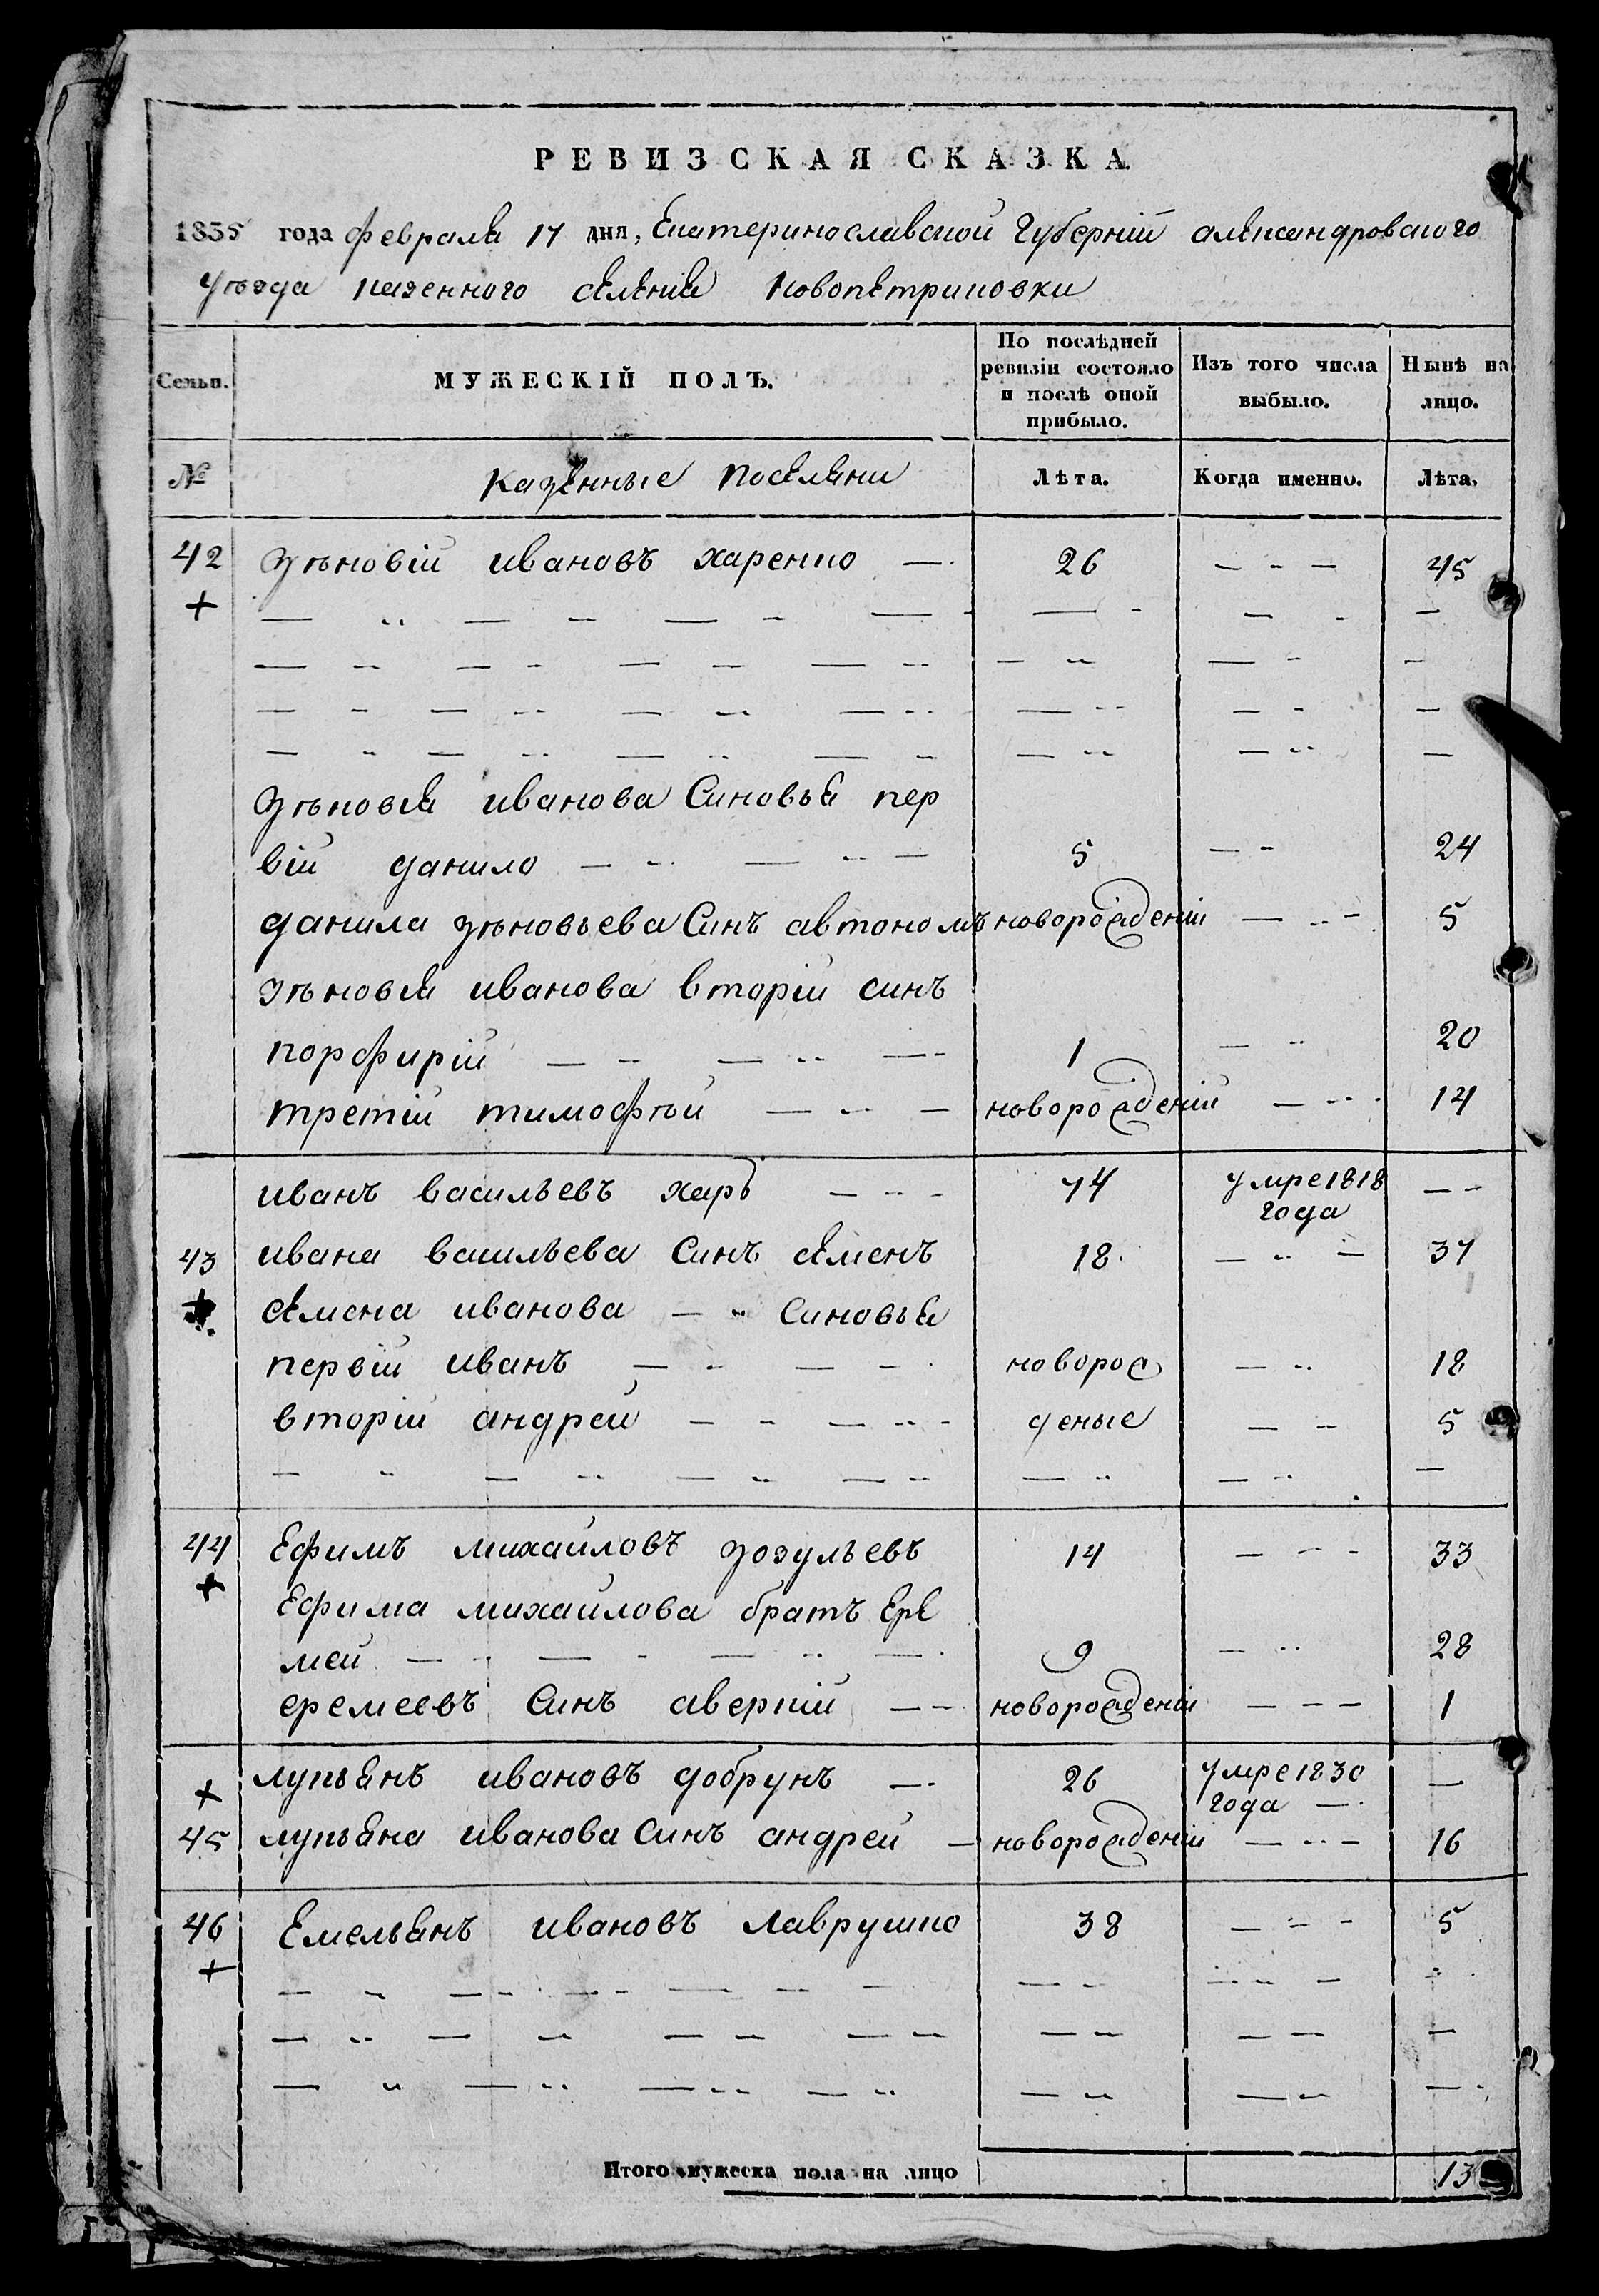 РЕВИЗСКАЯ СКАЗКА
1835 года февраля 17 дня, Екатеринославской Губерній александровского
уѣзда казенного селенія Новопетриковки
Семьи. МУЖЕСКІЙ ПОЛЪ. По послѣдней ревизіи состояло и послѣ оной прибыло. Изъ того числа выбыло. Нынѣ на лицо.
№ Казенные поселяни Лѣта. Когда именно. Лѣта.
42 Зѣновій ивановъ харенко 26 45
Зѣновія иванова Синовья пер
вій данило 5 24
данила зѣновьева Синъ автономъ новорожденій 5
зѣновія иванова вторій синъ
порфирій 1 20
третій тимофѣй новорожденій 14
иванъ васильевъ харъ 74 умре 1818 года
43 ивана васильева Синъ семенъ 18 37
семена иванова Синовья
первій иванъ новорож 18
вторій андрей деные 5
44 Ефимъ михайловъ зозульевъ 14 33
Ефима михайлова братъ Ере
мей 9 28
еремеевъ Синъ аверкій новорожденій 1
лупьянъ ивановъ добрунъ 26 умре 1830 года
45 лупьяна иванова Синъ андрей новорожденій 16
46 Емельянъ ивановъ лаврушко 38 5
Итого мужеска пола на лицо 13